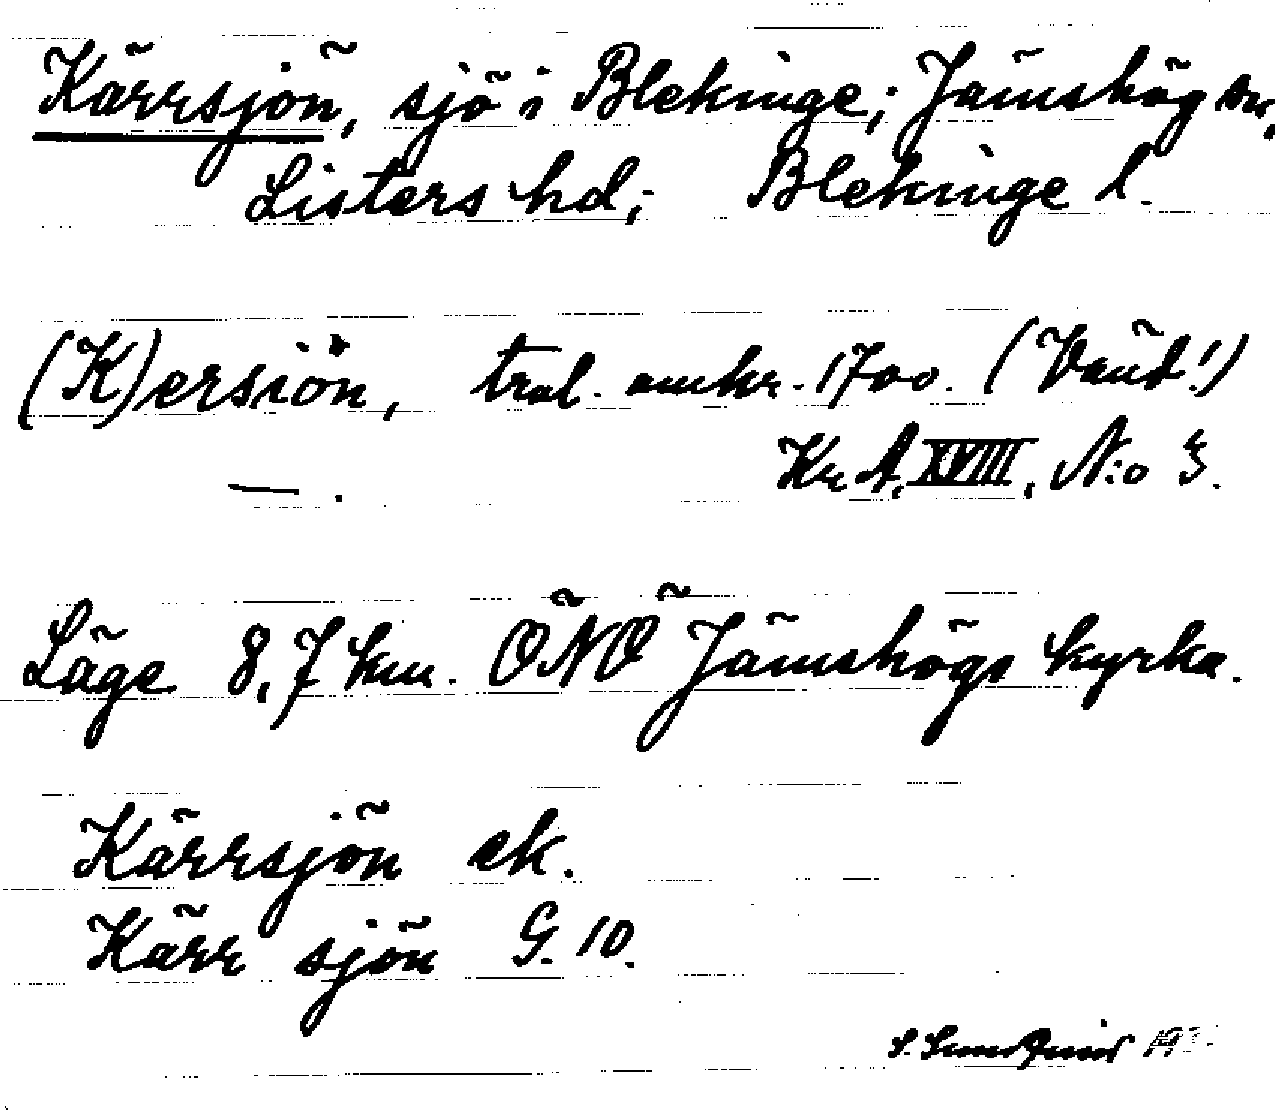 Kärrsjön, sjö i Blekinge; Jämshög sn,
Listers hd; Blekinge l.
(K)ersiön, trol. omkr. 1700. (Vänd!)
Kr. A. XVIII, N:o 3.
— .
Läge 8,7 km. ÖNÖ Jämshögs kyrka.
Kärrsjön ek.
Kärr sjön G. 10.
S.